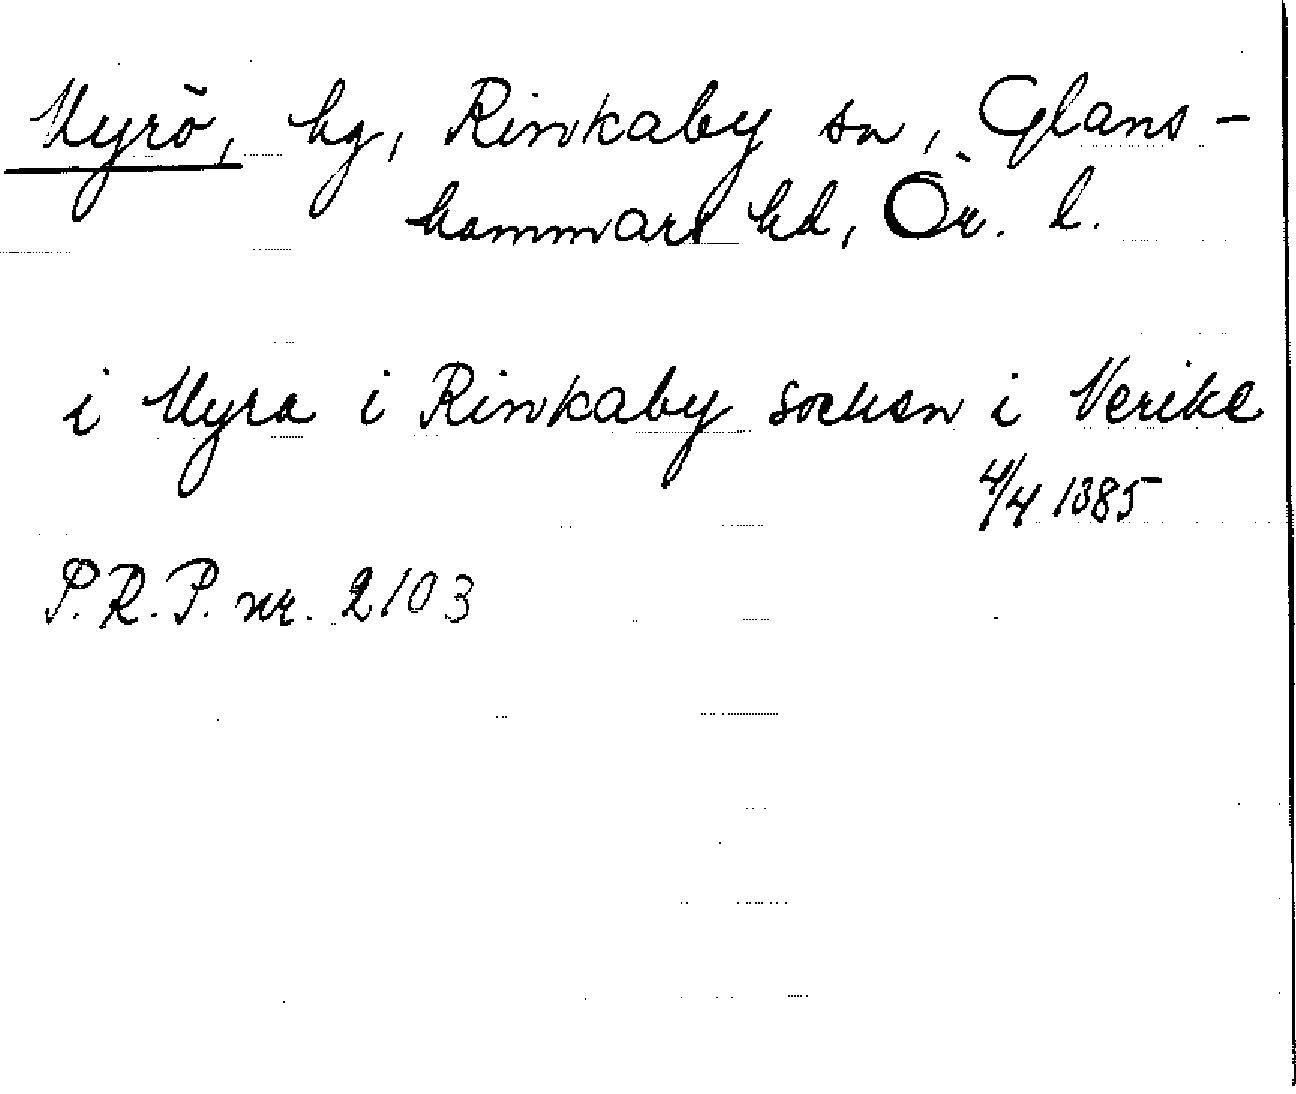 Myrö, hg, Rinkaby sn, Glans-
hammars hd, Ör. l.
i Myra i Rinkaby socken i Nerike
4/4 1385
P.R.P. nr. 2103